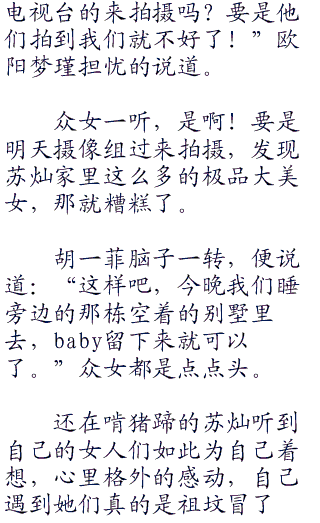 电视台的来拍摄吗？要是他
们拍到我们就不好了！”欧
阳梦瑾担忧的说道。
众女一听，是啊！要是
明天摄像组过来拍摄，发现
苏灿家里这么多的极品大美
女，那就糟糕了。
胡一菲脑子一转，便说
道：“这样吧，今晚我们睡
旁边的那栋空着的别墅里
去，baby留下来就可以
了。”众女都是点点头。
还在啃猪蹄的苏灿听到
自己的女人们如此为自己着
想，心里格外的感动，自己
遇到她们真的是祖坟冒了